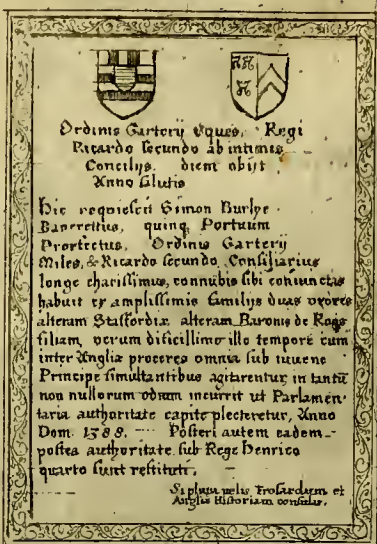 Ordinis Garterij Eques, Regi
Ricardo secundo ab intimis
Concilijs, diem obijt
Anno salutis
Hic requiescit Simon Burlye
Banerettus, quinq Portuum
Praefectus, Ordinis Garterij
Miles, & Ricardo secundo Consiliarius
longe charissimus, connubio sibi coniunctas
habuit ex amplissimis familijs duas uxores
alteram Staffordiae alteram Baronis de Roos
filiam, verum dificillimo illo tempore cum
inter Angliae proceres omnia sub iuuene
Principe simultantibus agitarentur, in tantu
non nullorum odium incurrit ut Parlamen
taria authoritate capite plecteretur, Anno
Dom. 1388. Posteri autem eadem
postea authoritate sub Rege Henrico
quarto sunt restituti.
Si plura velis Frosardum et
Angliae Historiam consulas.